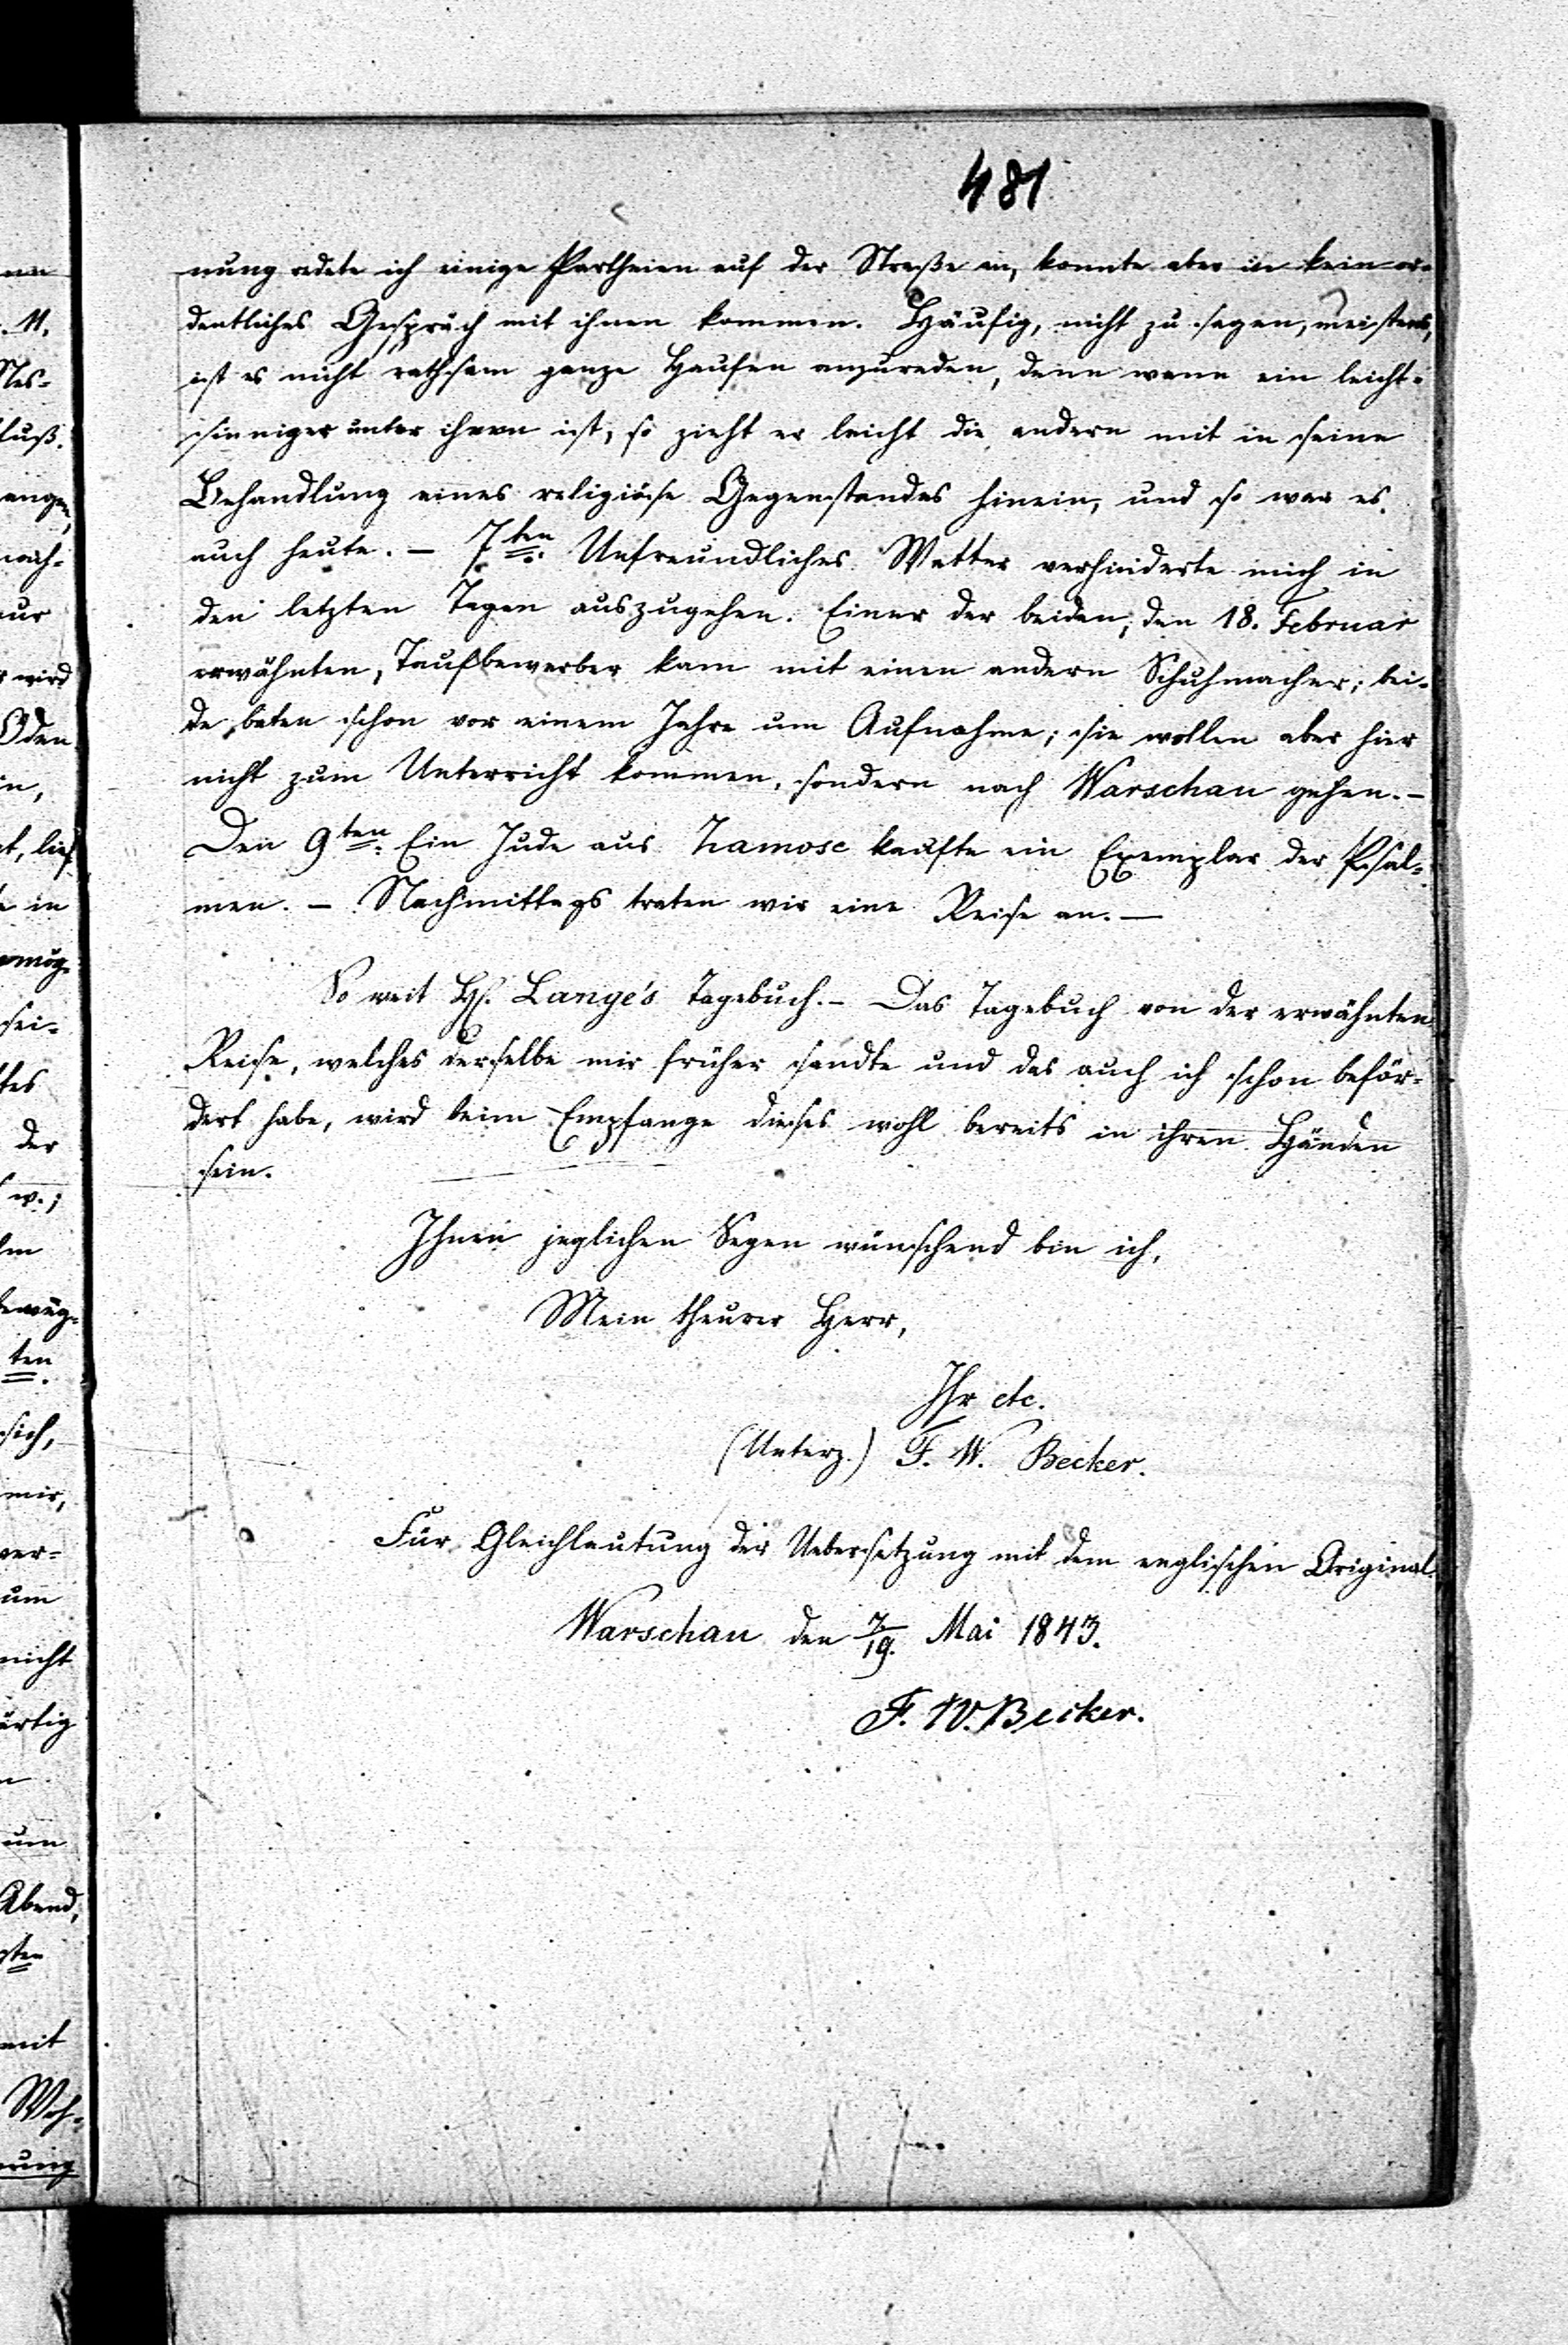 481
nung redete ich einige Partheien auf der Straße an, konnte aber in kein or-
dentliches Gespräch mit ihnen kommen. Häufig, nicht zu sagen, meistens,
ist es nicht rathsam ganze Haufen anzureden, denn wenn ein leicht-
sinniger unter ihnen ist, so zieht er leicht die andern mit in seine
Behandlung eines religiöse Gegenstandes hinein, und so war es
auch heute. – 7ten. Unfreundliches Wetter verhinderte mich in
den letzten Tagen auszugehen. Einer der beiden, den 18. Februar
erwähnten, Taufbewerber kam mit einen andern Schuhmacher; bei-
de baten schon vor einem Jahre um Aufnahme; sie wollen aber hier
nicht zum Unterricht kommen, sondern nach Warschau gehen. –
Den 9ten. Ein Jude aus Zamosc kaufte ein Exemplar der Psal-
men. – Nachmittags traten wir eine Reise an. –
So weit H. Lange's Tagebuch. – Das Tagebuch von der erwähnten
Reise, welches derselbe mir früher sandte und das auch ich schon beför-
dert habe, wird beim Empfange dieses wohl bereits in ihren Händen
sein.
Ihnen jeglichen Segen wünschend bin ich,
Mein theurer Herr,
Ihr etc.
(Unterz.) F. W. Becker.
Für Gleichlautung der Uebersetzung mit dem englischen Original.
Warschau den 7/19. Mai 1843.
F. W. Becker.